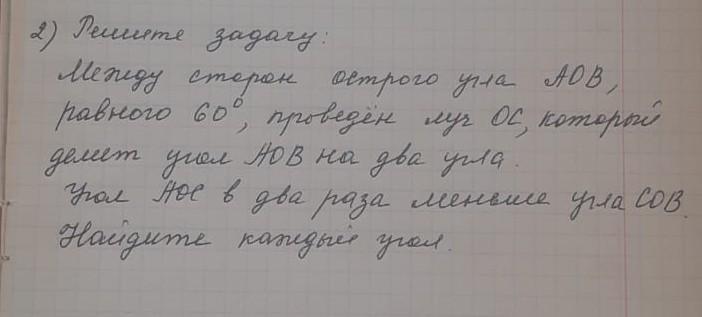 2) Решите задачу:
Между сторон острого угла АОВ,
равного 60°, проведён луч ОС, который
делит угол АОВ на два угла.
Угол АОС в два раза меньше угла СОВ.
Найдите каждый угол.